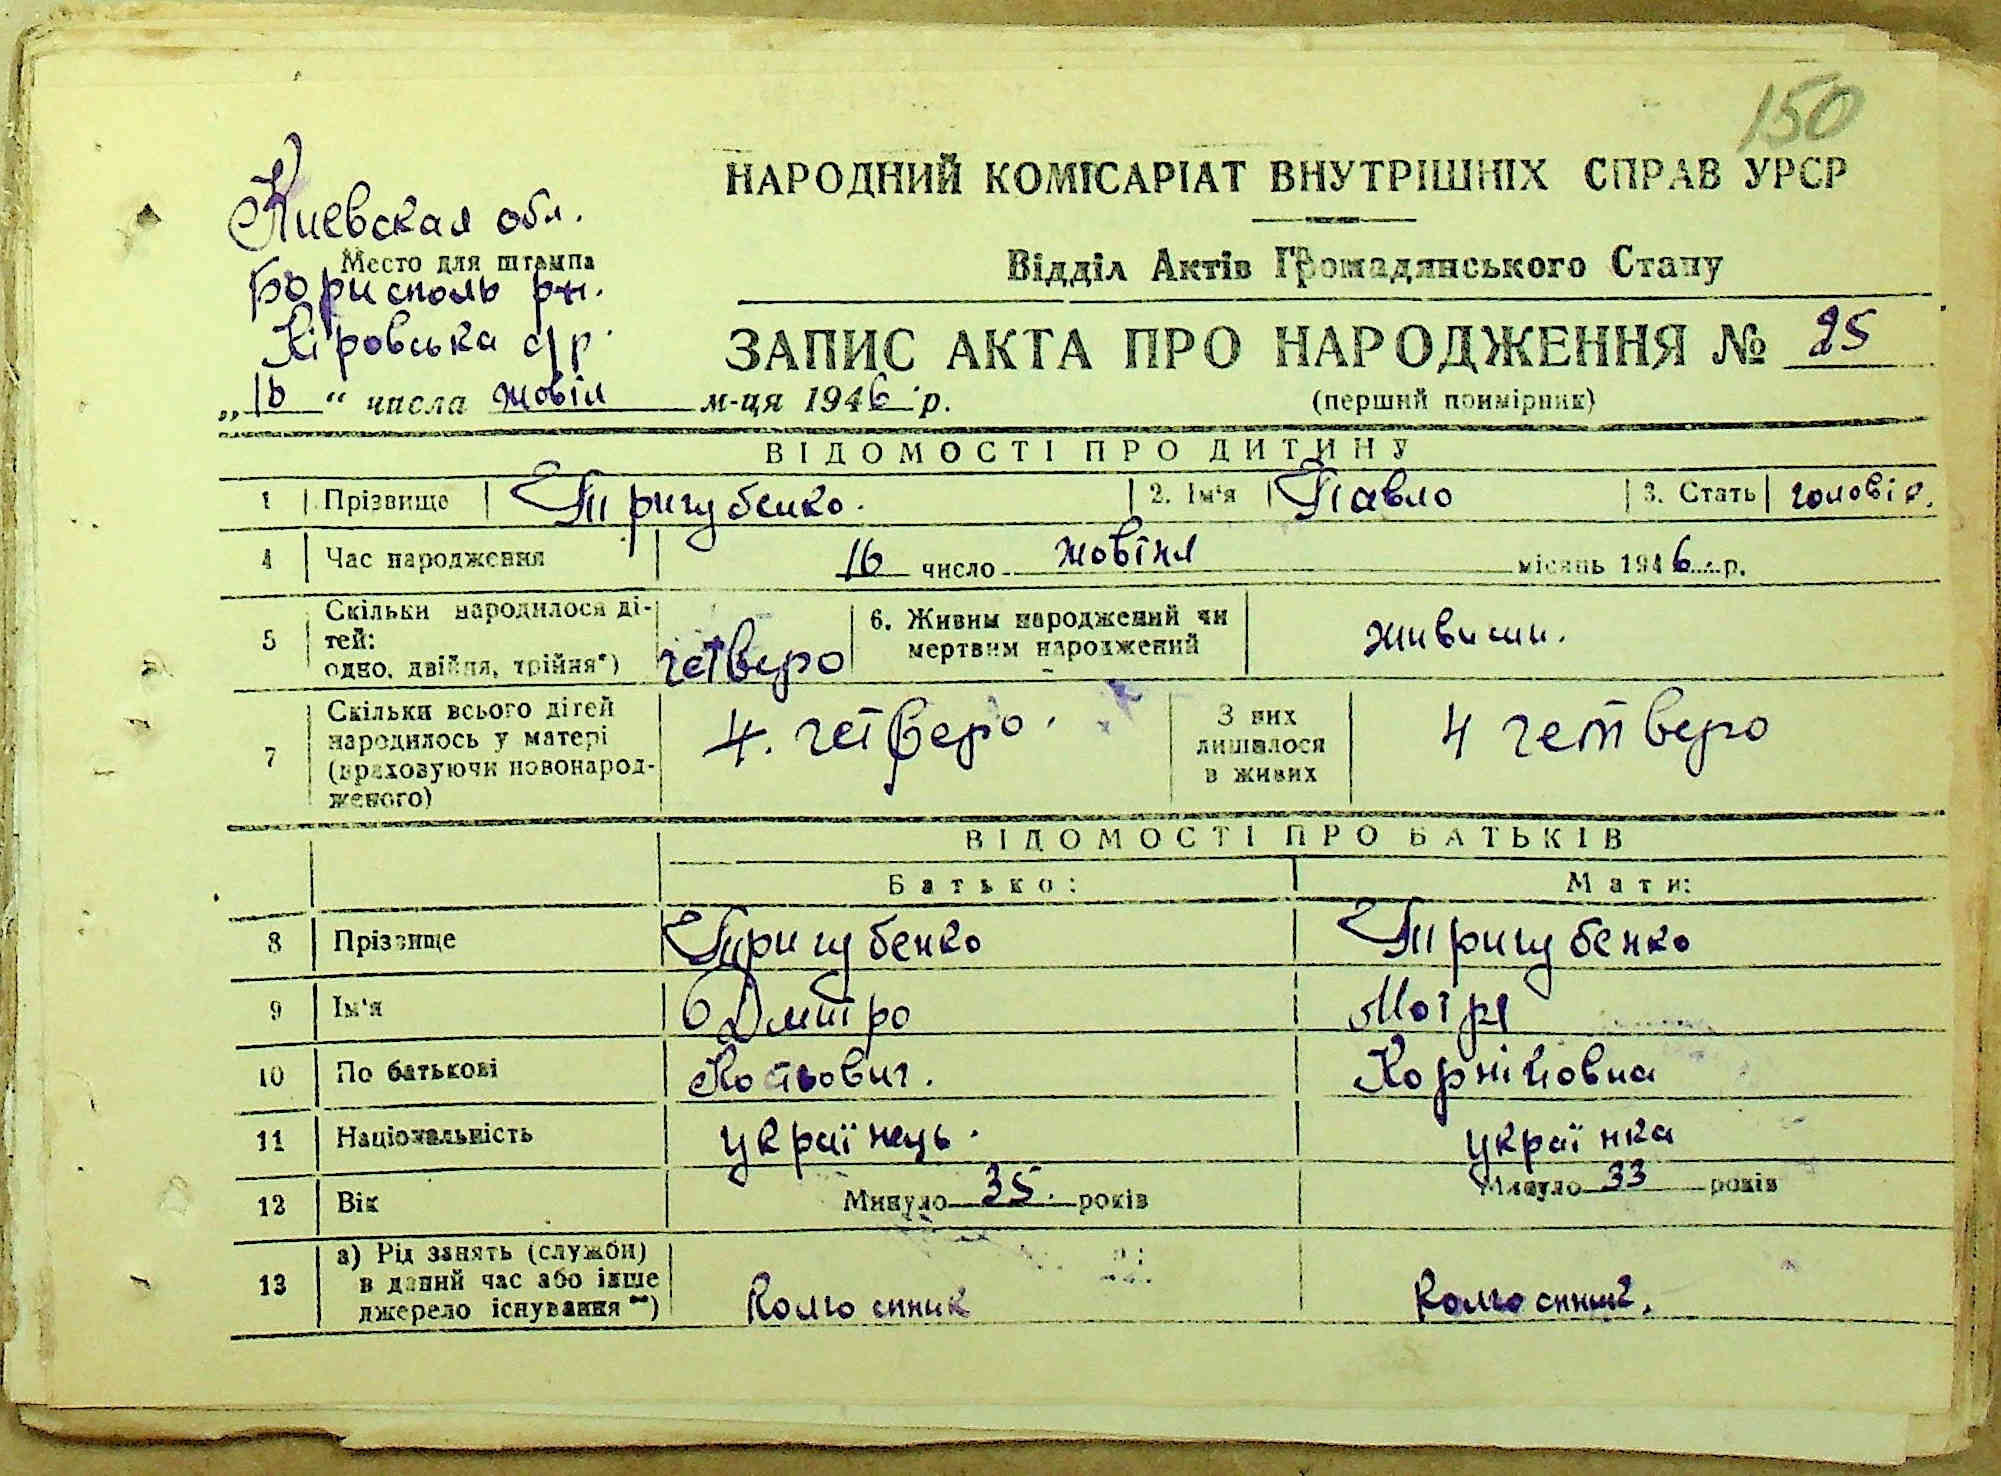 150
Киевская обл.
Место для штампа
Борисполь рн.
Кіровська с/р.
НАРОДНИЙ КОМІСАРІАТ ВНУТРІШНІХ СПРАВ УРСР
Відділ Актів Громадянського Стану
ЗАПИС АКТА ПРО НАРОДЖЕННЯ № 25
(перший примірник)
„16“ числа жовтя м-ця 1946 р.
ВІДОМОСТІ ПРО ДИТИНУ
1 Прізвище Тригубенко. 2. Ім'я Павло 3. Стать чоловіч.
4 Час народження 16 число жовтня місяць 1946 р.
5 Скільки народилося ді-
тей:
одно, двійня, трійня*) четверо
6. Живим народжений чи
мертвим народжений живими.
7 Скільки всього дітей
народилось у матері
(враховуючи новонарод-
женого) 4. четверо.
З них
лишилося
в живих 4 четверо
ВІДОМОСТІ ПРО БАТЬКІВ
Батько: Мати:
8 Прізвище Тригубенко Тригубенко
9 Ім'я Дмитро Мотря
10 По батькові Корнійовна
11 Національність українець. українка
12 Вік Минуло 35. років Минуло 33 років
13 а) Рід занять (служби)
в даний час або інше
джерело існування**) Колгоспник Колгоспниц.